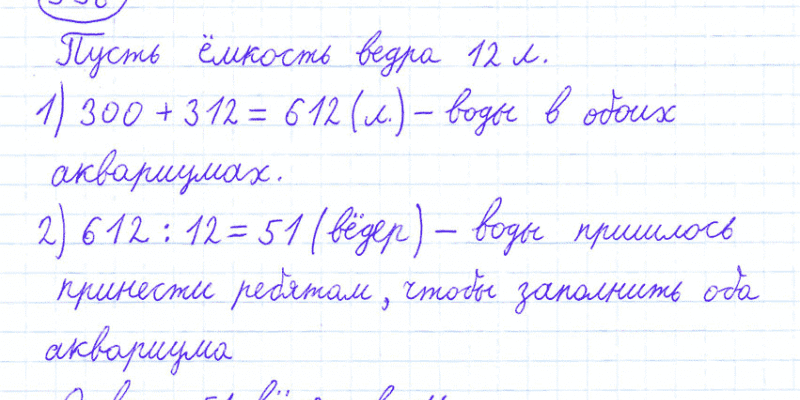 Пусть ёмкость ведра 12 л.
1) 300 + 312 = 612 (л.) – воды в обоих
аквариумах.
2) 612 : 12 = 51 (вёдер) – воды пришлось
принести ребятам, чтобы заполнить оба
аквариума